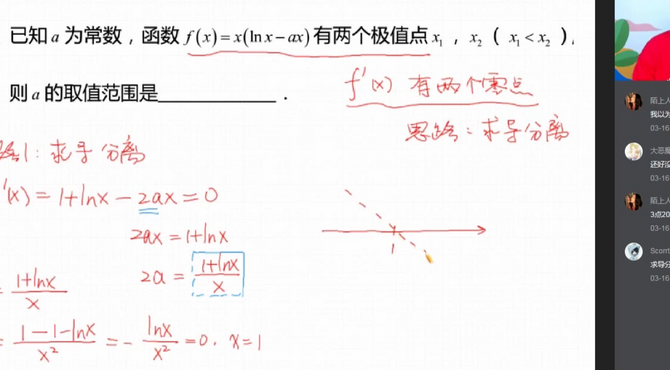 已知 a 为常数，函数 f(x)=x(ln x-ax) 有两个极值点 x₁，x₂（ x₁<x₂ ），
则 a 的取值范围是____________．
f'(x) 有两个零点
思路：求导分离
路1：求导分离
'(x) = 1+lnx - 2ax = 0
2ax = 1+lnx
2a = (1+lnx)/x
= (1+lnx)/x
= (1-1-lnx)/x² = - lnx/x² = 0. x=1
1
陌上人
我以为
03-16
大恶魔
还好没
03-16
陌上人
3点20
03-16
Scorri
求导分
03-16